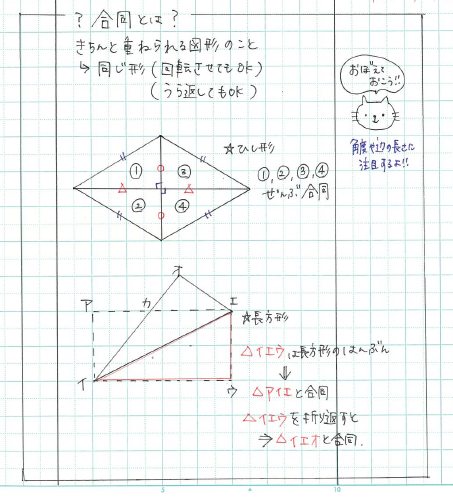 ? 合同とは ?
きちんと重ねられる図形のこと
↳ 同じ形 (回転させてもOK)
(うら返してもOK)
おぼえて
おこう!!
角度や辺の長さに
注目するよ!!
① ③
② ④
☆ひし形
①,②,③,④
ぜんぶ合同
オ
ア カ エ
イ ウ
☆長方形
△イエウは長方形のはんぶん
⇓
△アイエと合同
△イエウを折り返すと
⇒ △イエオと合同.
5
10